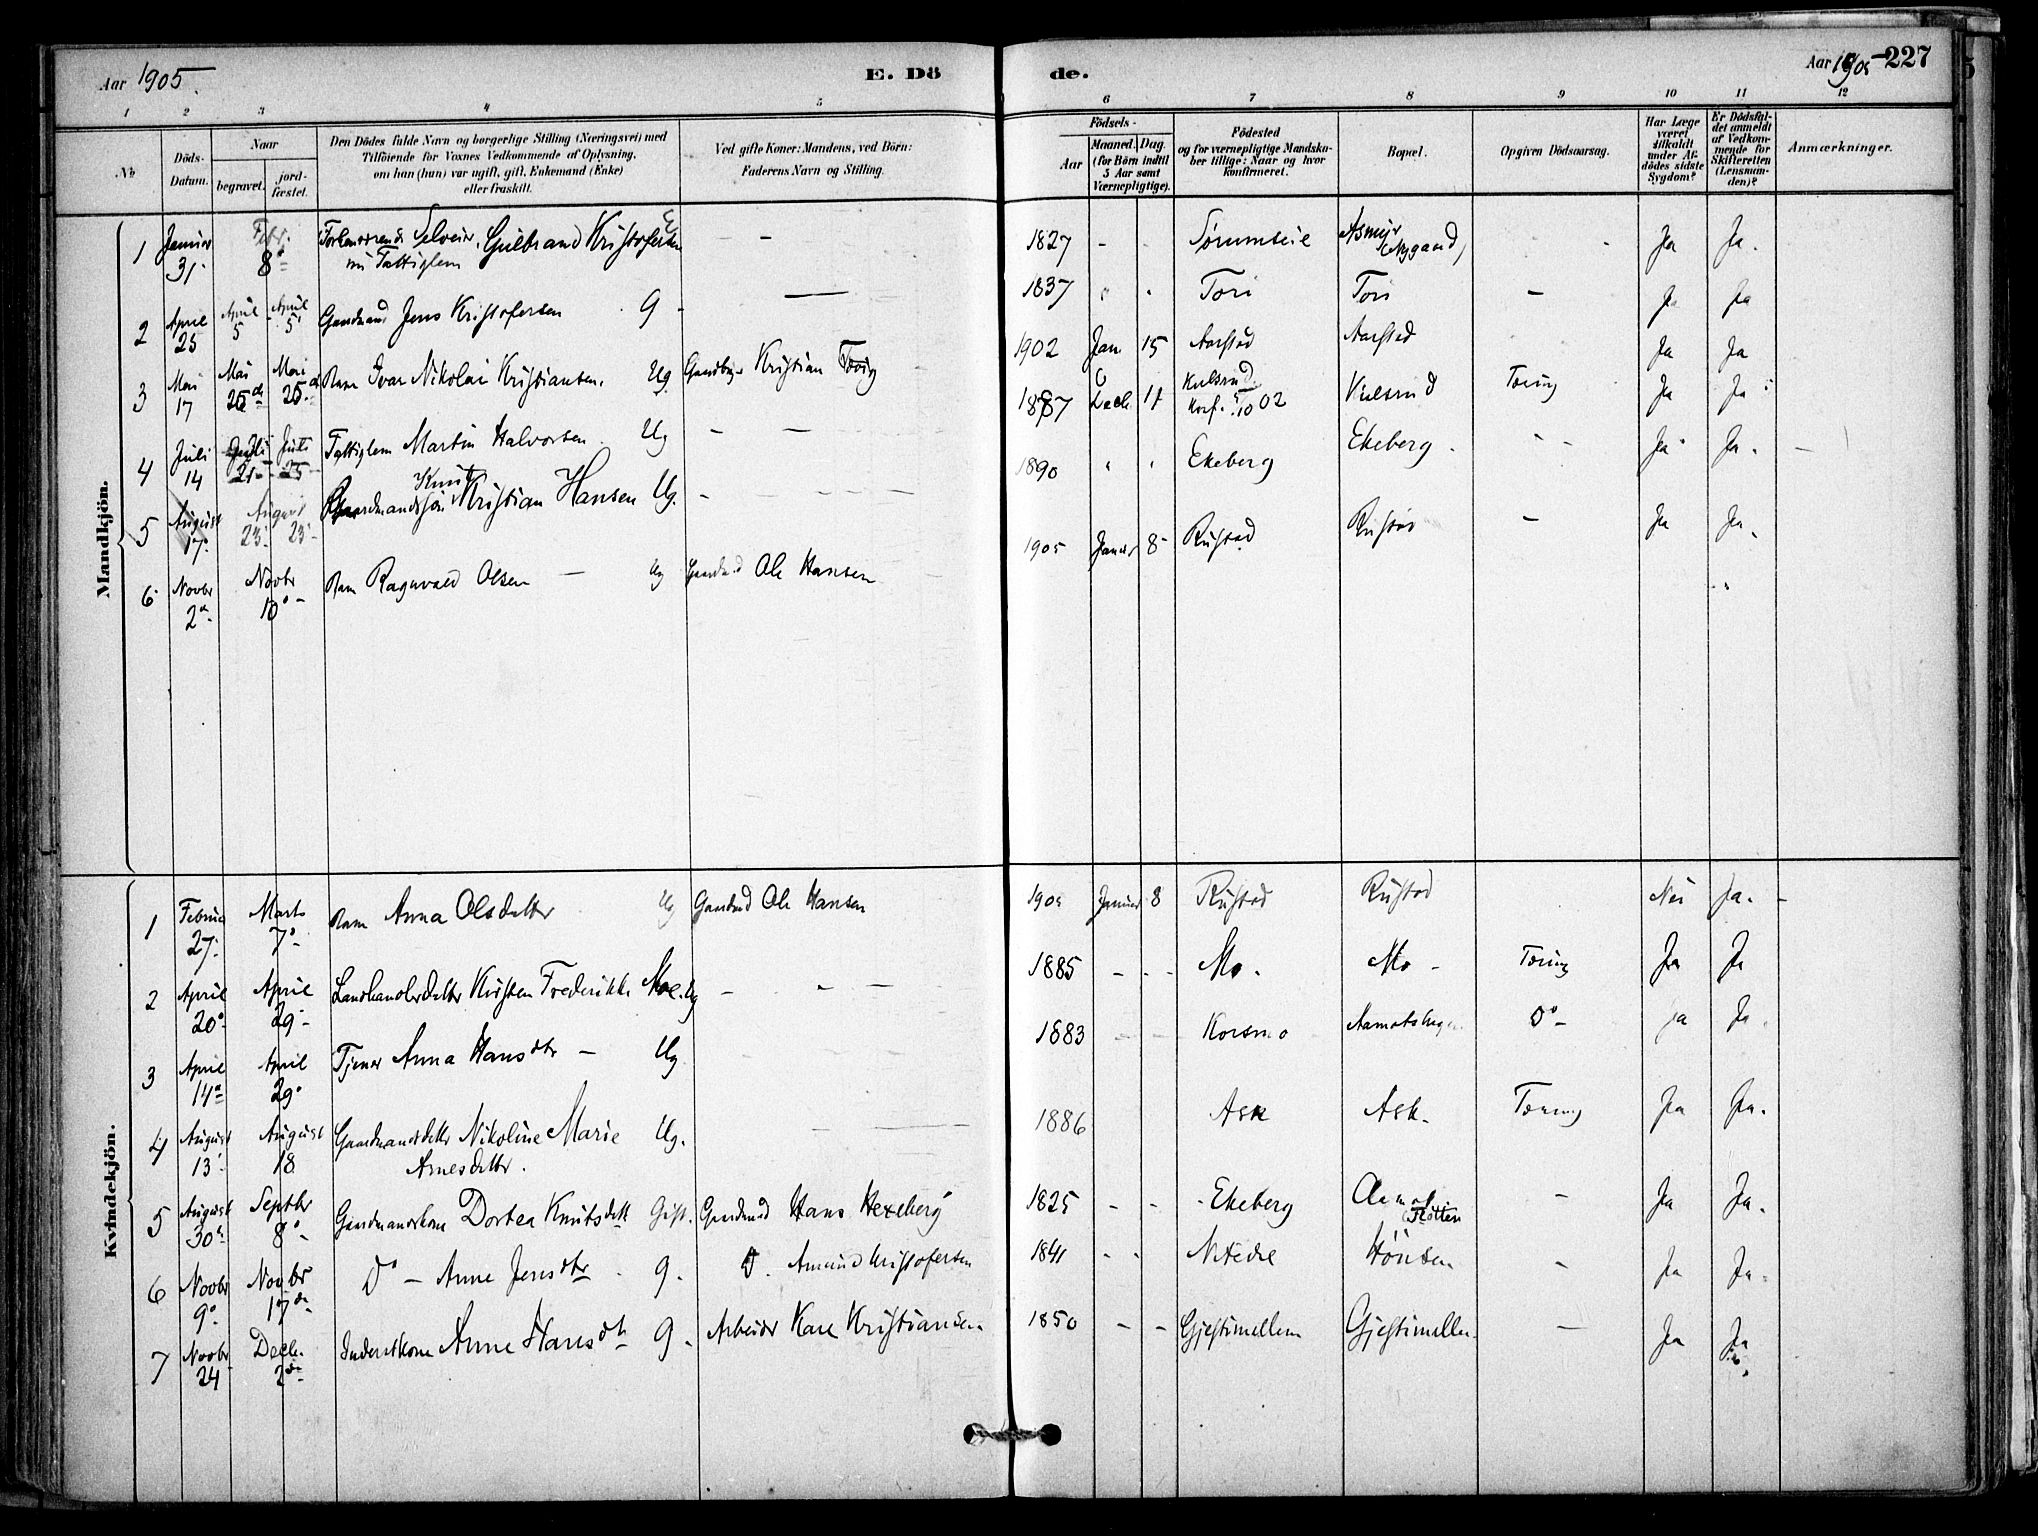 Aar 1905.
E. Dö
de.
Aar 1905
227
1 2 3 4 5 6 7 8 9 10 11 12
No
Döds-
Datum.
Naar
begravet.
jord-
fæstet.
Den Dödes fulde Navn og borgerlige Stilling (Næringsvei) med
Tilföiende for Voxnes Vedkommende af Oplysning,
om han (hun) var ugift, gift, Enkemand (Enke)
eller fraskilt.
Ved gifte Koner: Mandens, ved Börn:
Faderens Navn og Stilling.
Födsels-
Aar
Maaned. Dag.
(for Börn indtil
5 Aar samt
Værnepligtige).
Födested
og for værnepligtige Mandska-
ber tillige: Naar og hvor
konfirmeret.
Bopæl.
Opgiven Dödsaarsag.
Har Læge
været
tilkaldt
under Af-
dödes sidste
Sygdom?
Er Dödsfal-
det anmeldt
af Vedkom-
mende for
Skifteretten
(Lensman-
den)?
Anmærkninger.
Mandkjön.
1 Januar 31 Febr. 8 Forhenværende Selveier Gulbrand Kristofersen E - -
nu Fattiglem
1827 - - Sørumseie Asmyr (Nygaard) Ja Ja.
2 April 25 April 5 April 5 Gaardmand Jens Kristofersen G - —
1837 Tori Tori - Ja Ja
3 Mai 17 Mai 25 Mai 25 Barn Ivar Nikolai Kristiansen. Ug. Kristian
1902 Jan 15 Aarstad Aarstad Ja Ja
4 Juli 14 Juli 25 Juli 25 Fattiglem Martin Halvorsen Ug - -
1887 Decb 17 Kulsrud Konf. 5/10 02 Kulsrud Tæring Ja Ja
5 August 17. August 23 23 Gaardmandssøn Knut Kristian Hansen Ug. -
1890 Ekeberg Ekeberg Ja Ja. -
6 Novbr 2 Novbr 10 Barn Ragnvald Olsen — Ug Gaardmd Ole Hansen
1905 Januar 8 Rustad Rustad - Ja Ja.
Kvindekjön.
1 Februar 27. Marts 7 Barn Anna Olsdatter Ug Gaardmd Ole Hansen
1905 Januar 8 Rustad Rustad Nei Ja. -
2 April 20 April 29 Landhandlerdatter Kirsten Frederikke Moe. Ug - - -
1885 - - Mo. Mo - Tæring Ja Ja
3 April 14 April 29 Tjener Anna Hansdtr - Ug.
1883 Korsmo Do - Ja Ja.
4 August 13 August 18 Gaardmandsdatter Nikoline Marie Ug.
Arnesdatter.
1886 Ask Ask. Tæring Ja Ja.
5 August 30 Septbr 8 Gaardmandskone Dortea Knutsdatt Gift. Gaardmd Hans Hexeberg
1825 - - Ekeberg - Ja Ja.
6 Novbr 9 Novbr 17 Do - Anne Jensdtr G. D. Amund Kristofersen
1841 Nitedal Hönsen - Ja Ja.
7 Novbr 24 Decb. 2 Inderstkone Anne Hansdtr G. Arbeider Karl Kristiansen
1850 - - Gjestimellem Gjestimellem — Ja Ja